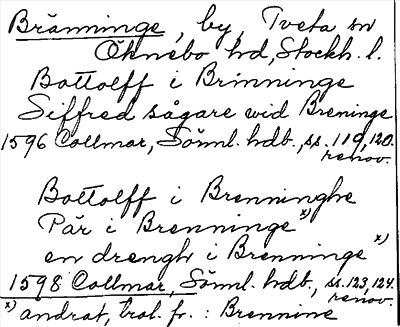 Bränninge, by, Tveta sn
Öknebo hd, Stockh. l.
Bottolff i Brinninge
Siffred sågare wid Breninge
1596 Collmar, Söml. hdb., ss. 119, 120.
renov.
Bottolff i Brenninghe
Pär i Brenninge x)
en drengh i Brenninge x)
1598 Collmar, Söml. hdb., ss. 123, 124.
renov.
x) ändrat, trol. fr. : Brennine